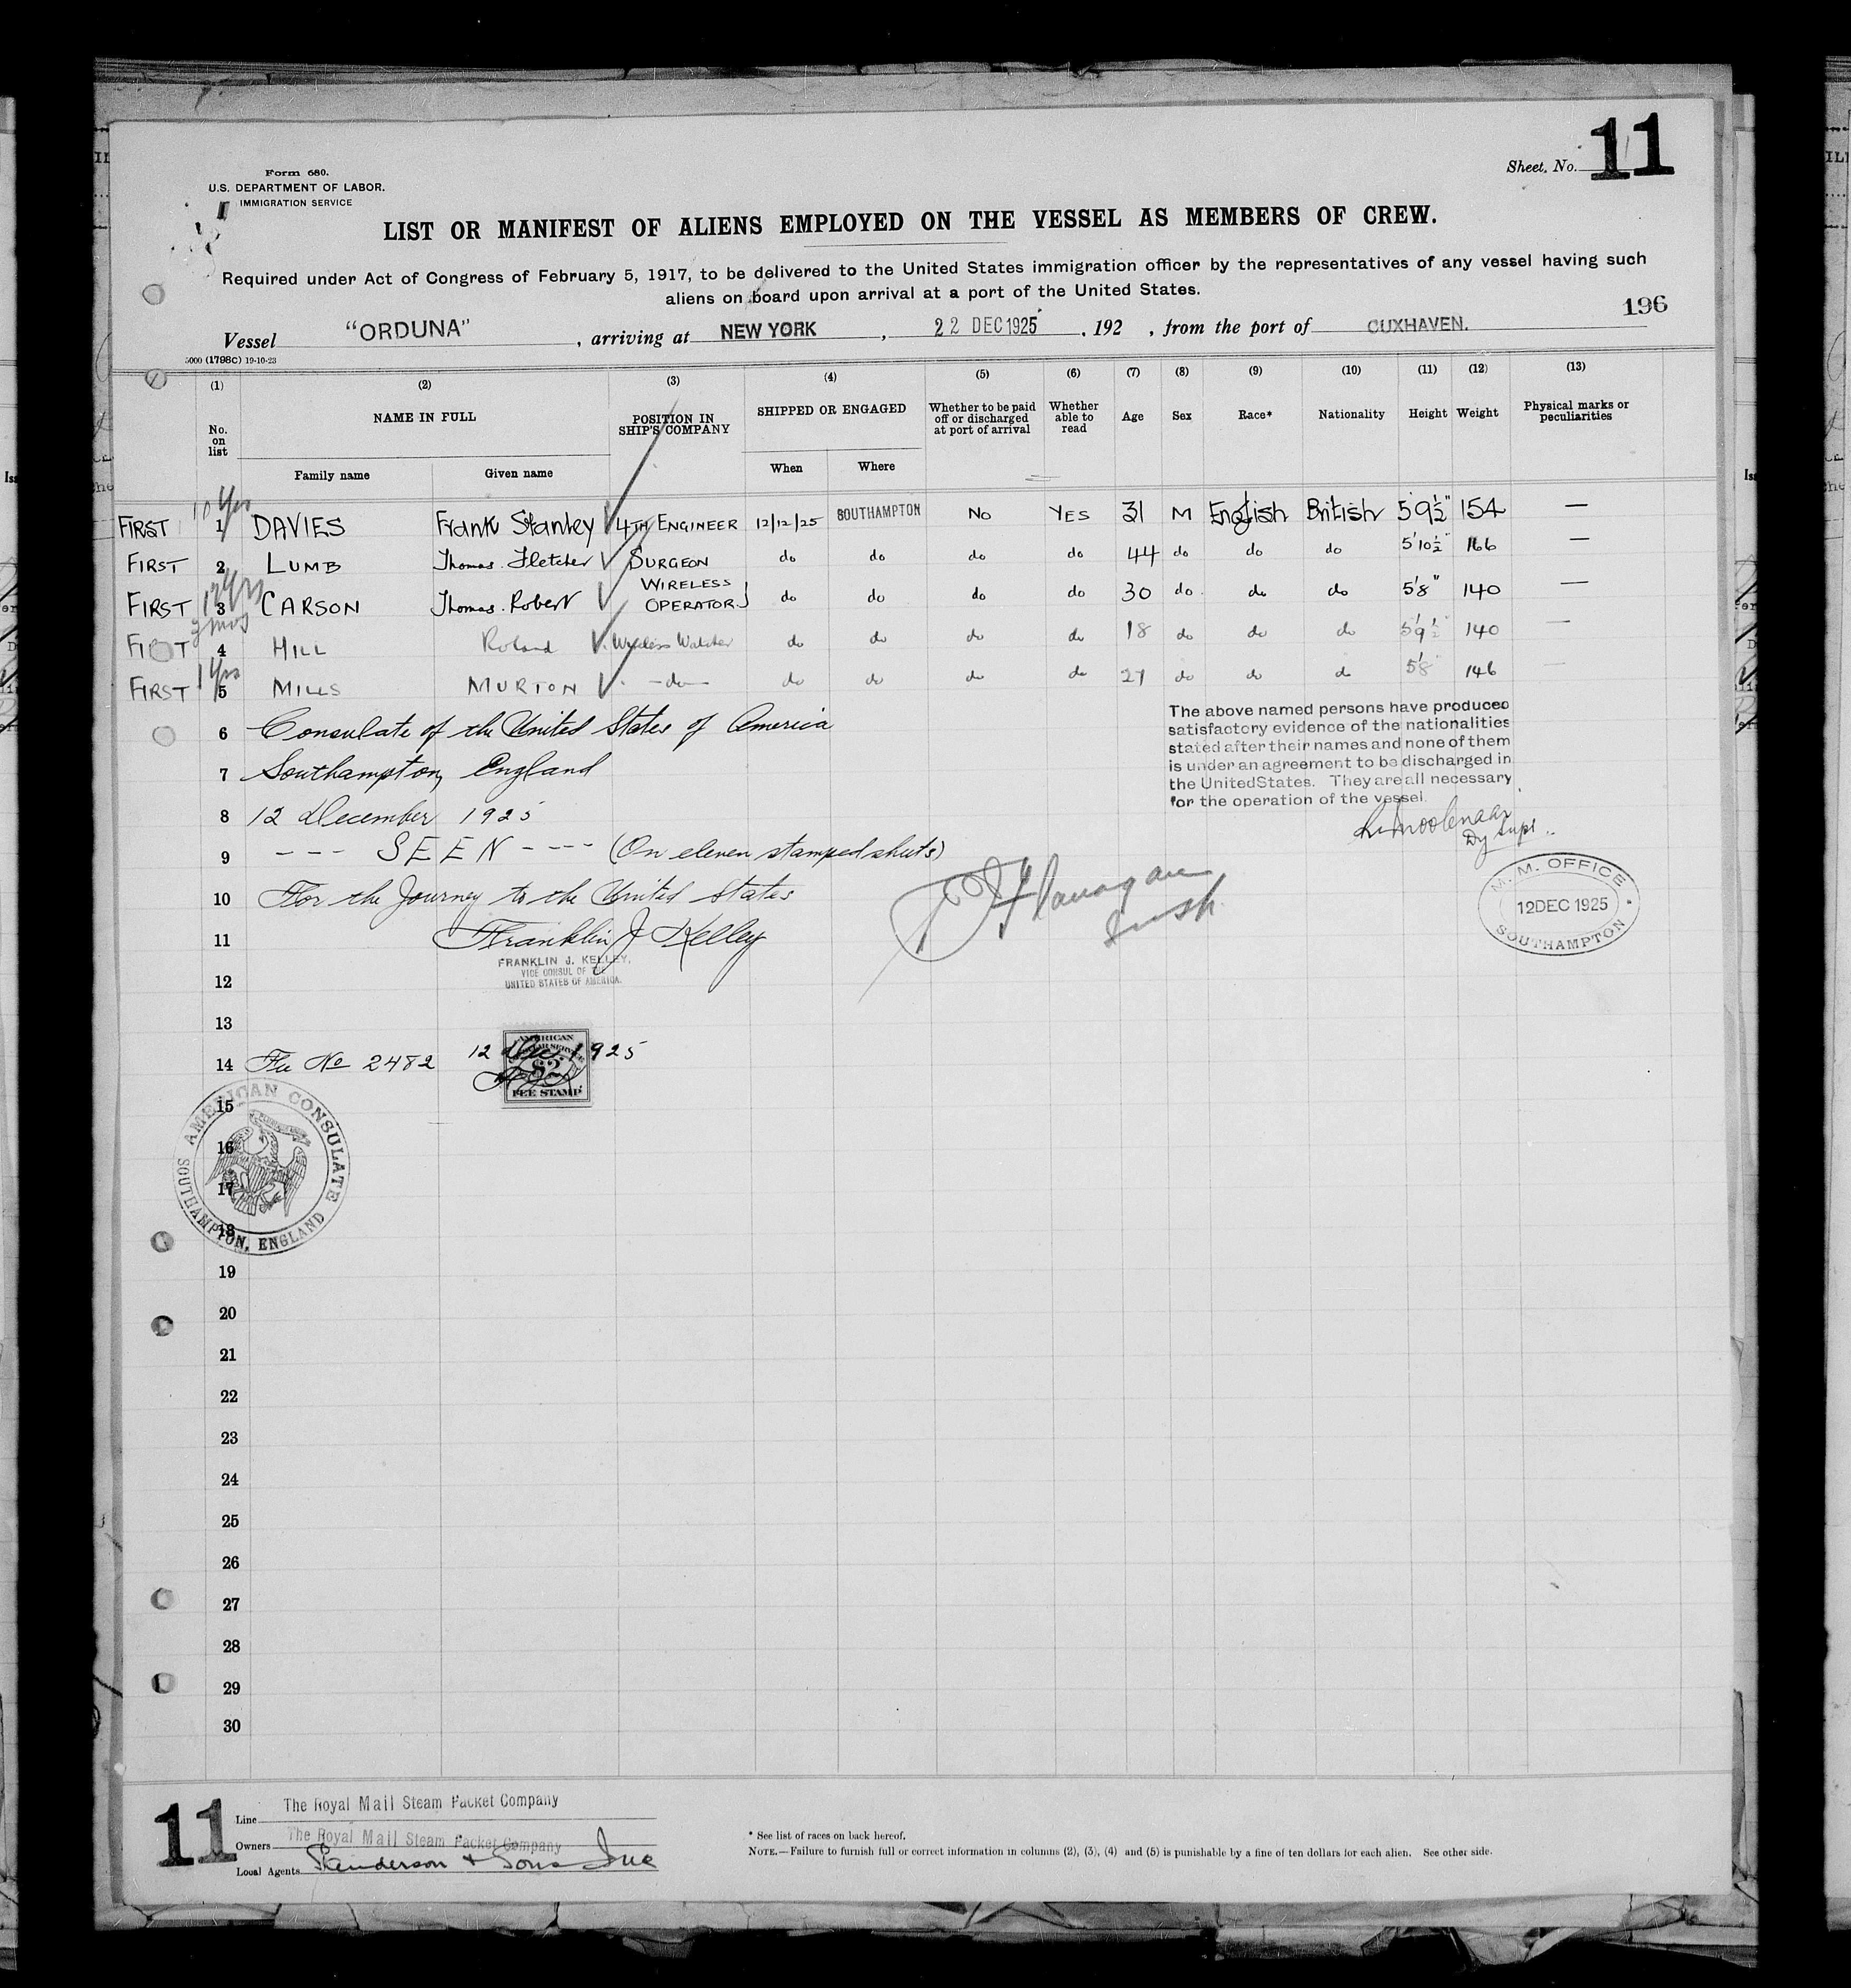 Sheet, No. 11
Form 680.
U.S. DEPARTMENT OF LABOR.
IMMIGRATION SERVICE
LIST OR MANIFEST OF ALIENS EMPLOYED ON THE VESSEL AS MEMBERS OF CREW.
Required under Act of Congress of February 5, 1917, to be delivered to the United States immigration officer by the representatives of any vessel having such
aliens on board upon arrival at a port of the United States.
196
Vessel "ORDUNA", arriving at NEW YORK, 22 DEC 1925, 192 , from the port of CUXHAVEN.
5000 (1798C) 19-10-23
(1) (2) (3) (4) (5) (6) (7) (8) (9) (10) (11) (12) (13)
No. on list NAME IN FULL POSITION IN SHIP'S COMPANY SHIPPED OR ENGAGED Whether to be paid off or discharged at port of arrival Whether able to read Age Sex Race* Nationality Height Weight Physical marks or peculiarities
Family name Given name When Where
10 yrs
FIRST 1 DAVIES Frank Stanley 4TH ENGINEER 12/12/25 SOUTHAMPTON No YES 31 M English British 5 9½" 154 —
FIRST 2 LUMB Thomas. Fletcher SURGEON do do do do 44 do do do 5'10½" 166 —
FIRST 3 CARSON Thomas. Robert WIRELESS OPERATOR do do do do 30 do do do 5'8" 140 —
2 mos
4 HILL Roland Wireless Watcher do do do do 18 do do do 5'9½" 140 —
1 yrs
FIRST 5 MILLS MURTON -do- do do do do 27 do do do 5'8" 146 —
6 Consulate of the United States of America
7 Southampton, England
8 12 December 1925
9 --- SEEN ---- (On eleven stamped sheets)
10 For the Journey to the United States
11 Franklin J Kelley
FRANKLIN J. KELLEY,
VICE CONSUL OF THE
UNITED STATES OF AMERICA.
The above named persons have produced
satisfactory evidence of the nationalities
stated after their names and none of them
is under an agreement to be discharged in
the United States. They are all necessary
for the operation of the vessel.
Dy Supt.
Flanagan
Irish
M. M. OFFICE
12 DEC 1925
SOUTHAMPTON
12
13
14 Fee No 2482 12 Dec 1925
AMERICAN
$2
FEE STAMP
AMERICAN CONSULATE
SOUTHAMPTON, ENGLAND
15
16
17
18
19
20
21
22
23
24
25
26
27
28
29
30
11
Line The Royal Mail Steam Packet Company
Owners The Royal Mail Steam Packet Company
Local Agents Sanderson + Sons Inc
* See list of races on back hereof.
NOTE.—Failure to furnish full or correct information in columns (2), (3), (4) and (5) is punishable by a fine of ten dollars for each alien. See other side.